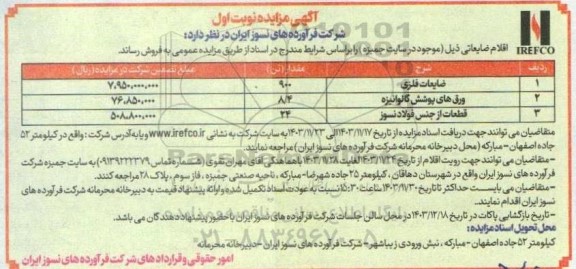 آگهی مزایده نوبت اول
شرکت فرآورده های نسوز ایران در نظر دارد:
IREFCO
اقلام ضایعاتی ذیل (موجود در سایت جمبزه) را براساس شرایط مندرج در اسناد از طریق مزایده عمومی به فروش رساند.
ردیف شرح مقدار (تن) مبلغ تضمین شرکت در مزایده (ریال)
۱ ضایعات فلزی ۹۰۰ ۷,۹۵۰,۰۰۰,۰۰۰
۲ ورق های پوشش گالوانیزه ۸/۴ ۷۶,۸۵۰,۰۰۰
۳ قطعات از جنس فولاد نسوز ۲۴ ۵۰۸,۸۰۰,۰۰۰
متقاضیان می توانند جهت دریافت اسناد مزایده از تاریخ ۱۴۰۳/۱۱/۱۷ الی ۱۴۰۳/۱۱/۲۳ به سایت شرکت به نشانی www.irefco.ir و یا به آدرس شرکت : واقع در کیلومتر ۵۲
جاده اصفهان - مبارکه (محل دبیرخانه محرمانه شرکت فرآورده های نسوز ایران) مراجعه نمایند.
-متقاضیان می توانند جهت رویت اقلام از تاریخ ۱۴۰۳/۱۱/۲۴ لغایت ۱۴۰۳/۱۱/۲۸ با هماهنگی آقای مهران تقوی (شماره تماس ۰۹۱۳۹۲۲۲۳۷۹) به سایت جمبزه شرکت
فرآورده های نسوز ایران واقع در شهرستان دهاقان، کیلومتر ۲۵ جاده شهرضا- مبارکه ، ناحیه صنعتی جمبزه ، فاز سوم ، پلاک ۲۸ مراجعه کنند.
-متقاضیان می بایست حداکثر تا تاریخ ۱۴۰۳/۱۱/۳۰ ساعت ۱۵:۳۰ نسبت به عودت اسناد تکمیل شده و ارائه پیشنهاد قیمت به دبیرخانه محرمانه شرکت فرآورده های
نسوز ایران اقدام نمایند.
-تاریخ بازگشایی پاکات در تاریخ ۱۴۰۳/۱۲/۱۸ در محل سالن جلسات شرکت فرآورده های نسوز ایران با حضور پیشنهاد دهندگان می باشد.
محل تحویل اسناد مزایده:
کیلومتر ۵۲ جاده اصفهان - مبارکه ، نبش ورودی زیباشهر - شرکت فرآورده های نسوز ایران - دبیرخانه محرمانه
امور حقوقی و قراردادهای شرکت فرآورده های نسوز ایران
۰۲۱-۸۸۳۴۹۶۷۰-۵